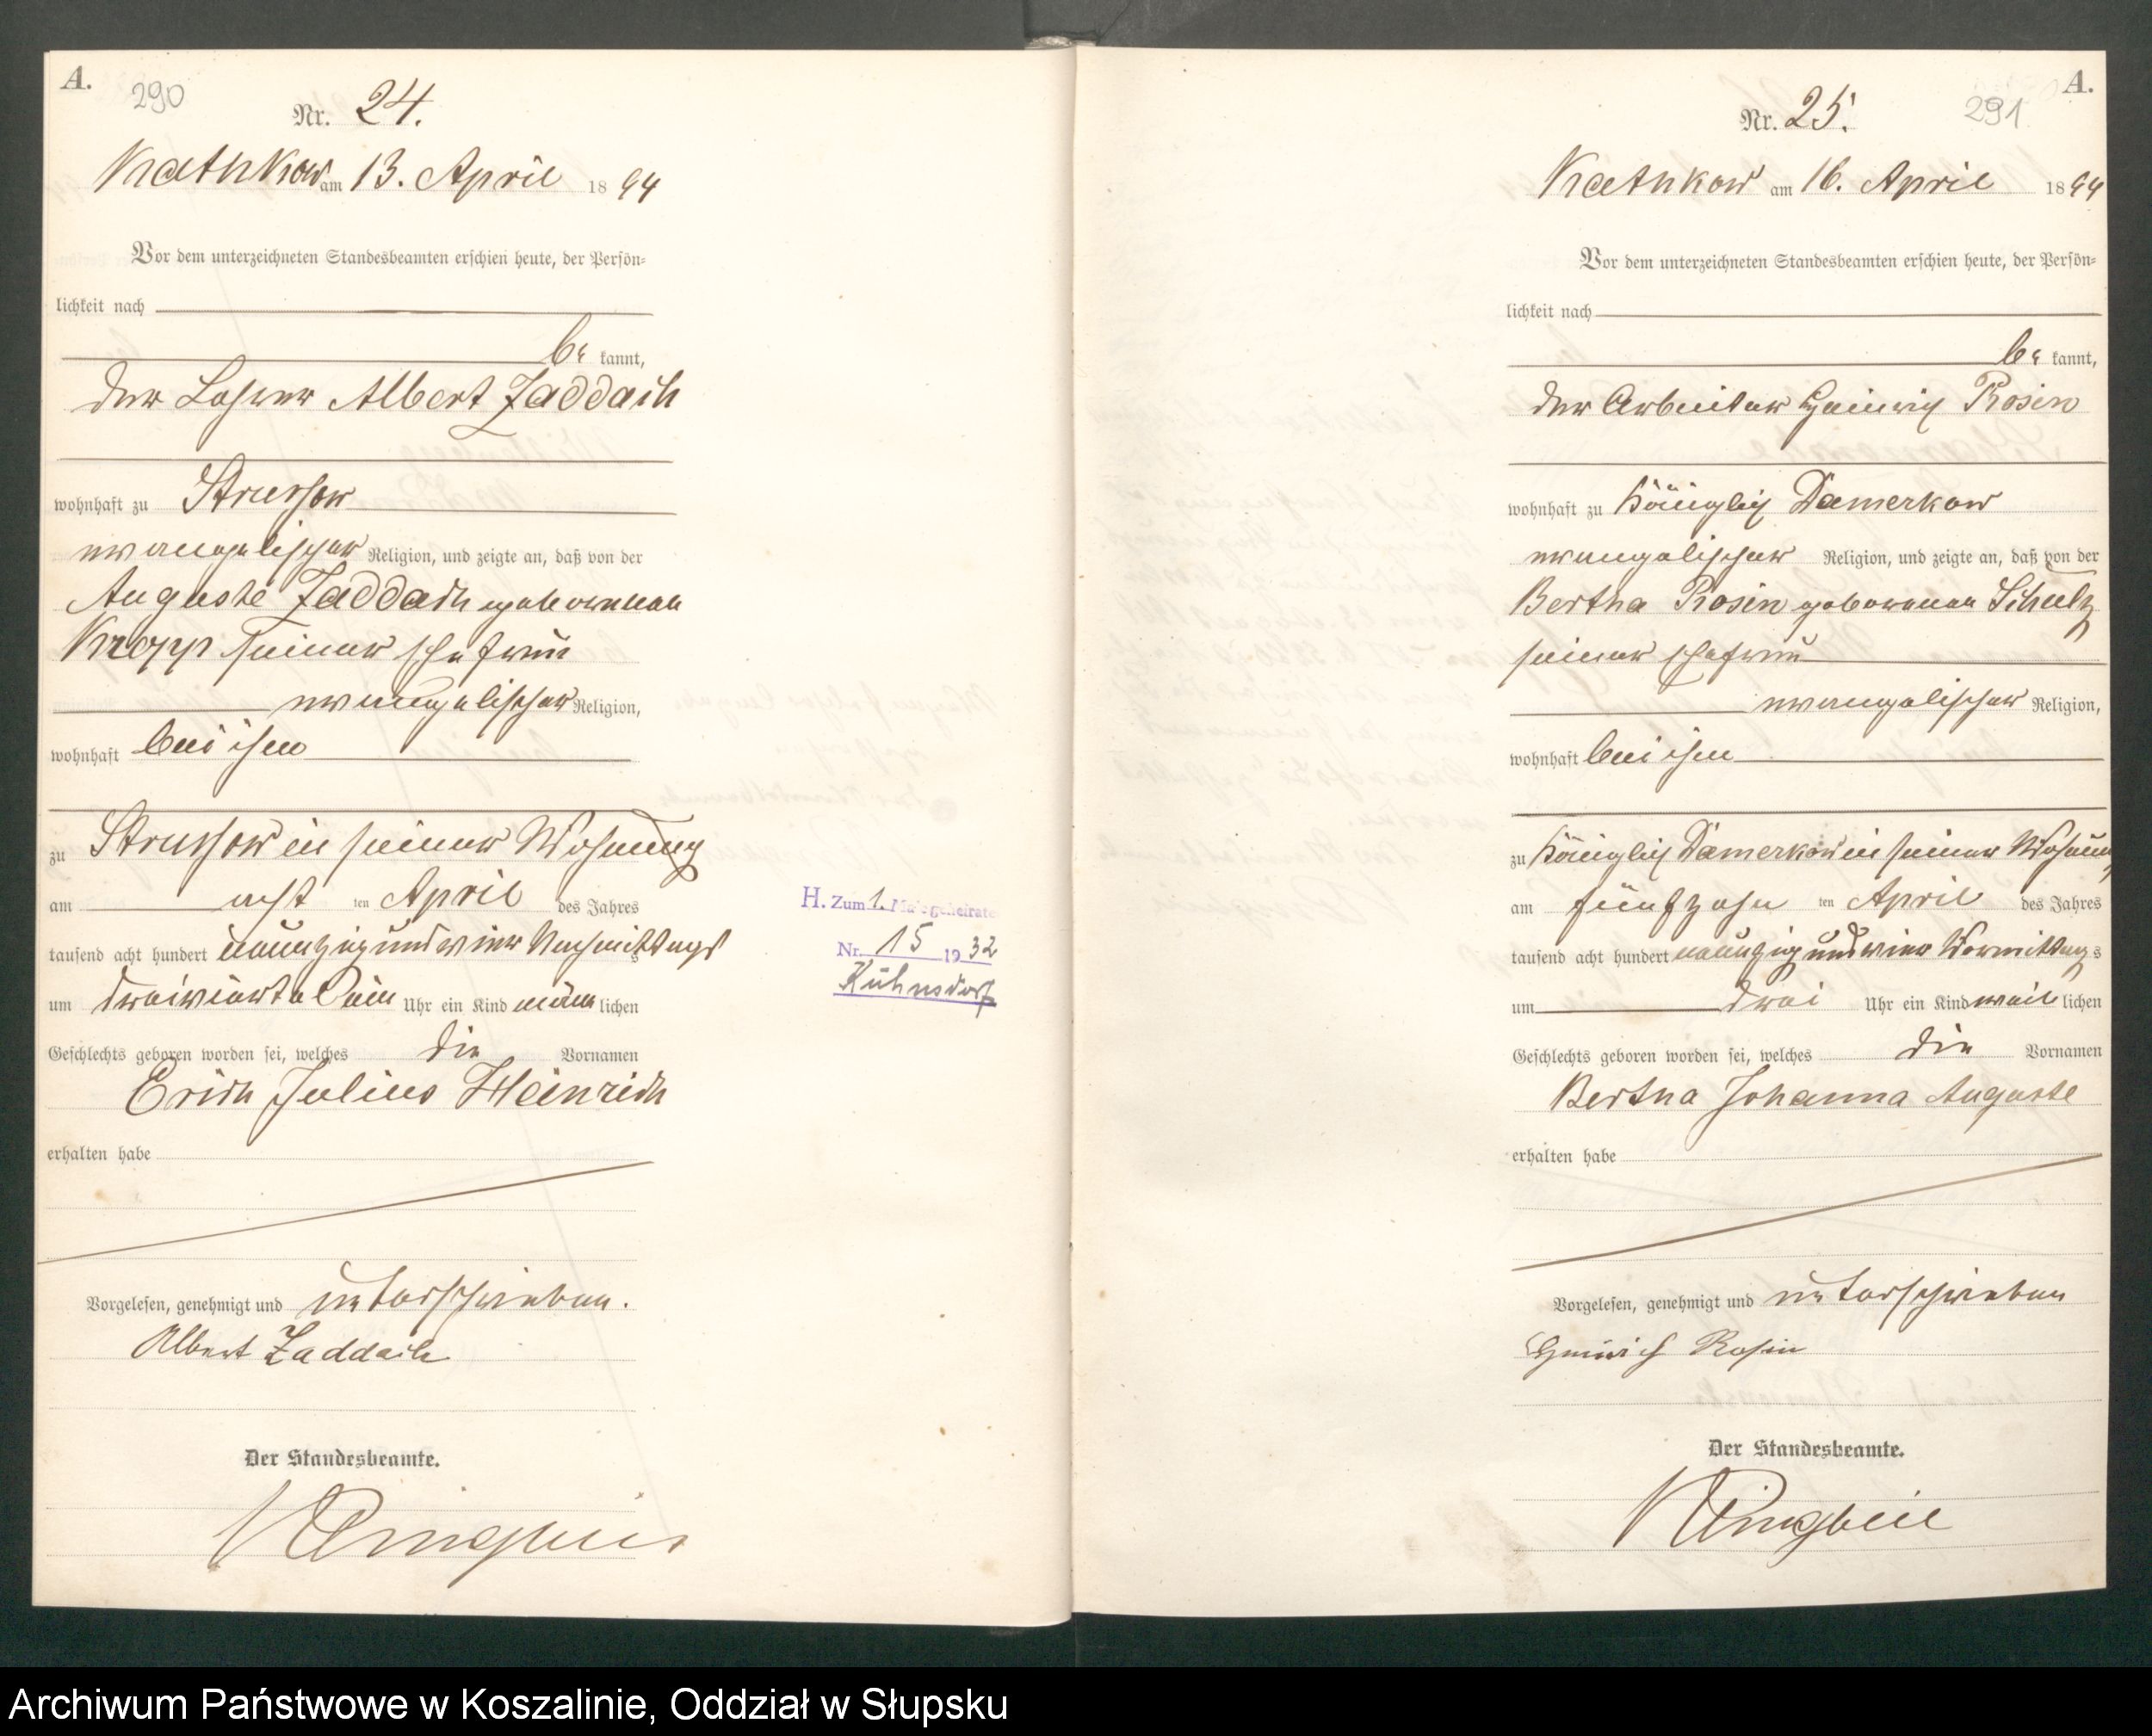 A.
290
Nr. 24.
Kathkow am 13. April 1894
Vor dem unterzeichneten Standesbeamten erschien heute, der Persön-
lichkeit nach
be kannt,
der Albert Zaddach
wohnhaft zu Strussow
evangelischer Religion, und zeigte an, daß von der
Auguste Zaddach geborenen
Kropp seiner Ehefrau
evangelischer Religion,
wohnhaft bei ihm
zu Strussow in seiner Wohnung
am acht ten April des Jahres
tausend acht hundert neunzig und vier Nachmittags
um dreiviertel ein Uhr ein Kind männ lichen
Geschlechts geboren worden sei, welches die Vornamen
Erich Julius Heinrich
erhalten habe
Vorgelesen, genehmigt und unterschrieben.
Albert Zaddach
Der Standesbeamte.
H. Zum 1. Male geheiratet
Nr. 15 1932
Kühnsdorf
A.
291
Nr. 25.
Kathkow am 16. April 1894
Vor dem unterzeichneten Standesbeamten erschien heute, der Persön-
lichkeit nach
be kannt,
der Arbeiter Heinrich Rosin
wohnhaft zu Königlich Damerkow
evangelischer Religion, und zeigte an, daß von der
Bertha Rosin geborenen Schulz
seiner Ehefrau
evangelischer Religion,
wohnhaft bei ihm
zu Königlich Damerkow in seiner Wohnung
am fünfzehn ten April des Jahres
tausend acht hundert neunzig und vier Vormittags
um drei Uhr ein Kind weib lichen
Geschlechts geboren worden sei, welches die Vornamen
Bertha Johanna Auguste
erhalten habe
Vorgelesen, genehmigt und unterschrieben
Heinrich Rosin
Der Standesbeamte.
Archiwum Państwowe w Koszalinie, Oddział w Słupsku